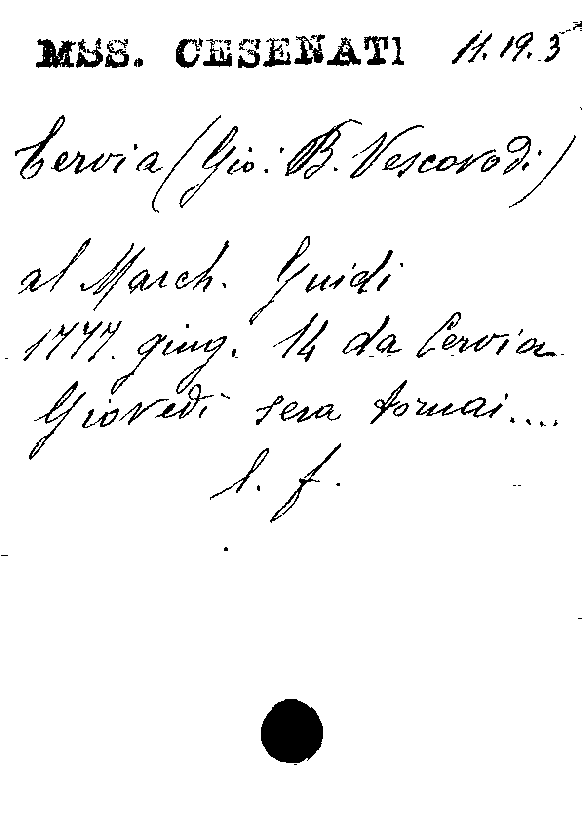 MSS. CESENATI 11.19.5
Cervia (Gio: B. Vescovo di)
al March. Guidi
1777. giug. 14 da Cervia
Giovedì sera tornai....
l. f.